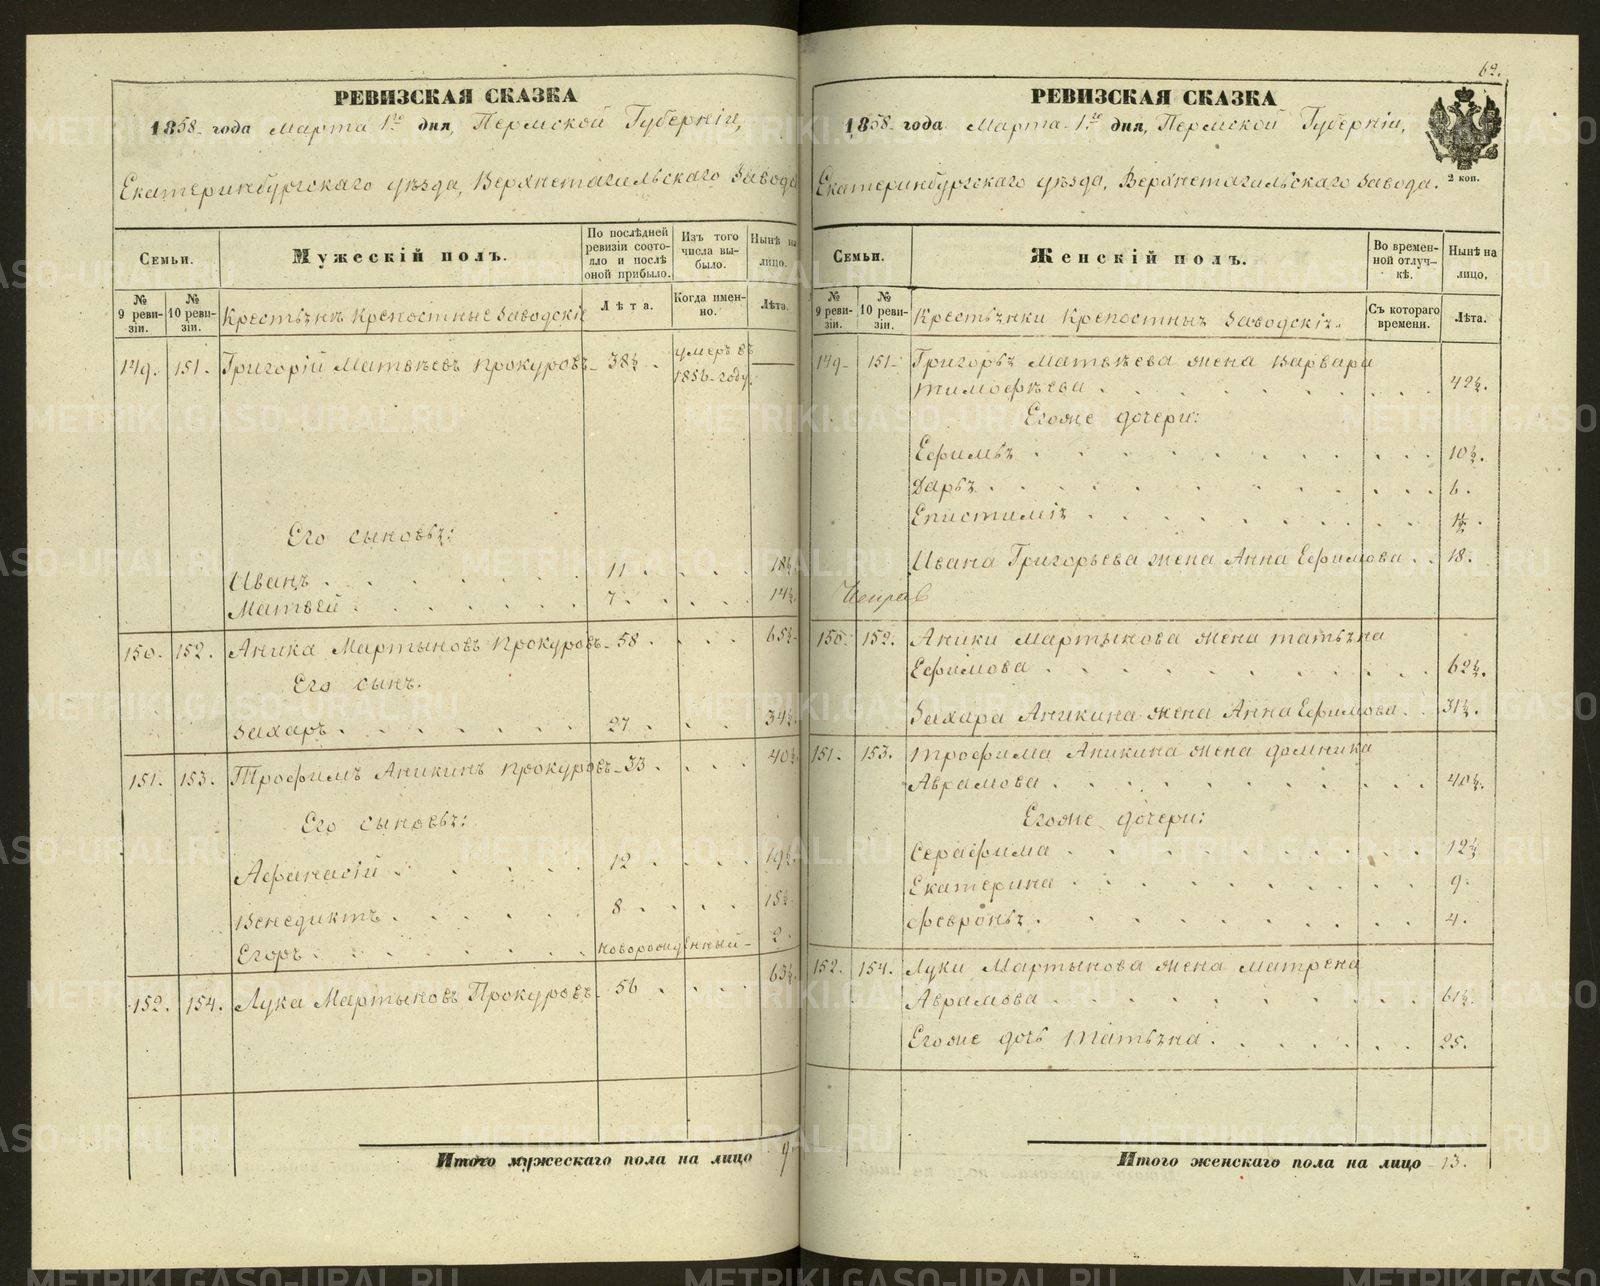 РЕВИЗСКАЯ СКАЗКА
1858 года Марта 1го дня, Пермской Губернiи,
Екатеринбургскаго уѣзда, Верхнетагильскаго Завода
Семьи.
Мужескiй полъ.
По послѣдней ревизiи состояло и послѣ оной прибыло.
Изъ того числа выбыло.
Нынѣ на лицо.
№ 9 ревизiи.
№ 10 ревизiи.
Крестьянъ Крепостные Заводскiе
Лѣта.
Когда именно.
Лѣта.
149. 151. Григорiй Матвѣевъ Прокуровъ 38½. умеръ въ
1856 году.
Его сыновья:
Иванъ 11. 18½.
Матвей 7. 14½.
150. 152. Аника Мартыновъ Прокуровъ 58. 65½.
Его сынъ.
Захаръ 27. 34½.
151. 153. Трофимъ Аникинъ Прокуровъ 33. 40½.
Его сыновья:
Афанасiй 12. 19½.
Венедиктъ 8. 15½.
Егоръ новорожденный 2.
152. 154. Лука Мартыновъ Прокуровъ 56. 63½.
Итого мужескаго пола на лицо 9.
62.
РЕВИЗСКАЯ СКАЗКА
1858 года Марта 1го дня, Пермской Губернiи,
Екатеринбургскаго уѣзда, Верхнетагильскаго Завода.
2 коп.
Семьи.
Женскiй полъ.
Во временной отлучкѣ.
Нынѣ на лицо.
№ 9 ревизiи.
№ 10 ревизiи.
Крестьянки Крепостныя Заводскiя.
Съ котораго времени.
Лѣта.
149. 151. Григорья Матвѣева жена Варвара
Тимофѣева 42½.
Егоже дочери:
Ефимья 10½.
Дарья 6.
Епистимiя
Ивана Григорьева жена Анна Ефимова 18.
150. 152. Аники Мартынова жена татьяна
Ефимова 62½.
Захара Аникина жена Анна Ефимова 31½.
151. 153. Трофима Аникина жена домника
Аврамова 40½.
Егоже дочери:
Серафима 12½
Екатерина 9.
Февронья 4.
152. 154. Луки Мартынова жена Матрена
Аврамова 61½.
Егоже дочь Татьяна 25.
Итого женскаго пола на лицо 13.
METRIKI.GASO-URAL.RU